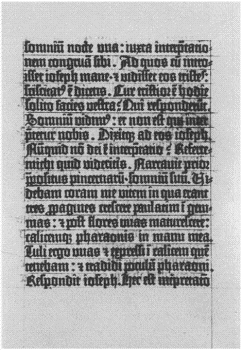 somniū nocte una: iuxta interp̄tatio-
nem congruā sibi. Ad quos cū intro-
isset ioseph mane: ⁊ vidisset eos tristes:
sciscitat' ē dicens. Cur tristior ē hodie
solito facies vestra? Qui responderūt.
Somniū vidim': et non est qui inter-
pretetur nobis. Dixitq; ad eos ioseph.
Nūquid nō dei ē interp̄tatio? Referte
michi quid videritis. Narravit prior
p̄positus pincernarū somniū suū. Vi-
debam coram me vitem in qua erant
tres p̄pagines crescere paulatim ī gem-
mas: ⁊ post flores uvas maturescere:
calicemq; pharaonis in manu mea.
Tuli ergo uvas ⁊ expressi ī calicem quē
tenebam: ⁊ tradidi poculū pharaoni.
Respondit ioseph. Hec est interp̄tatio